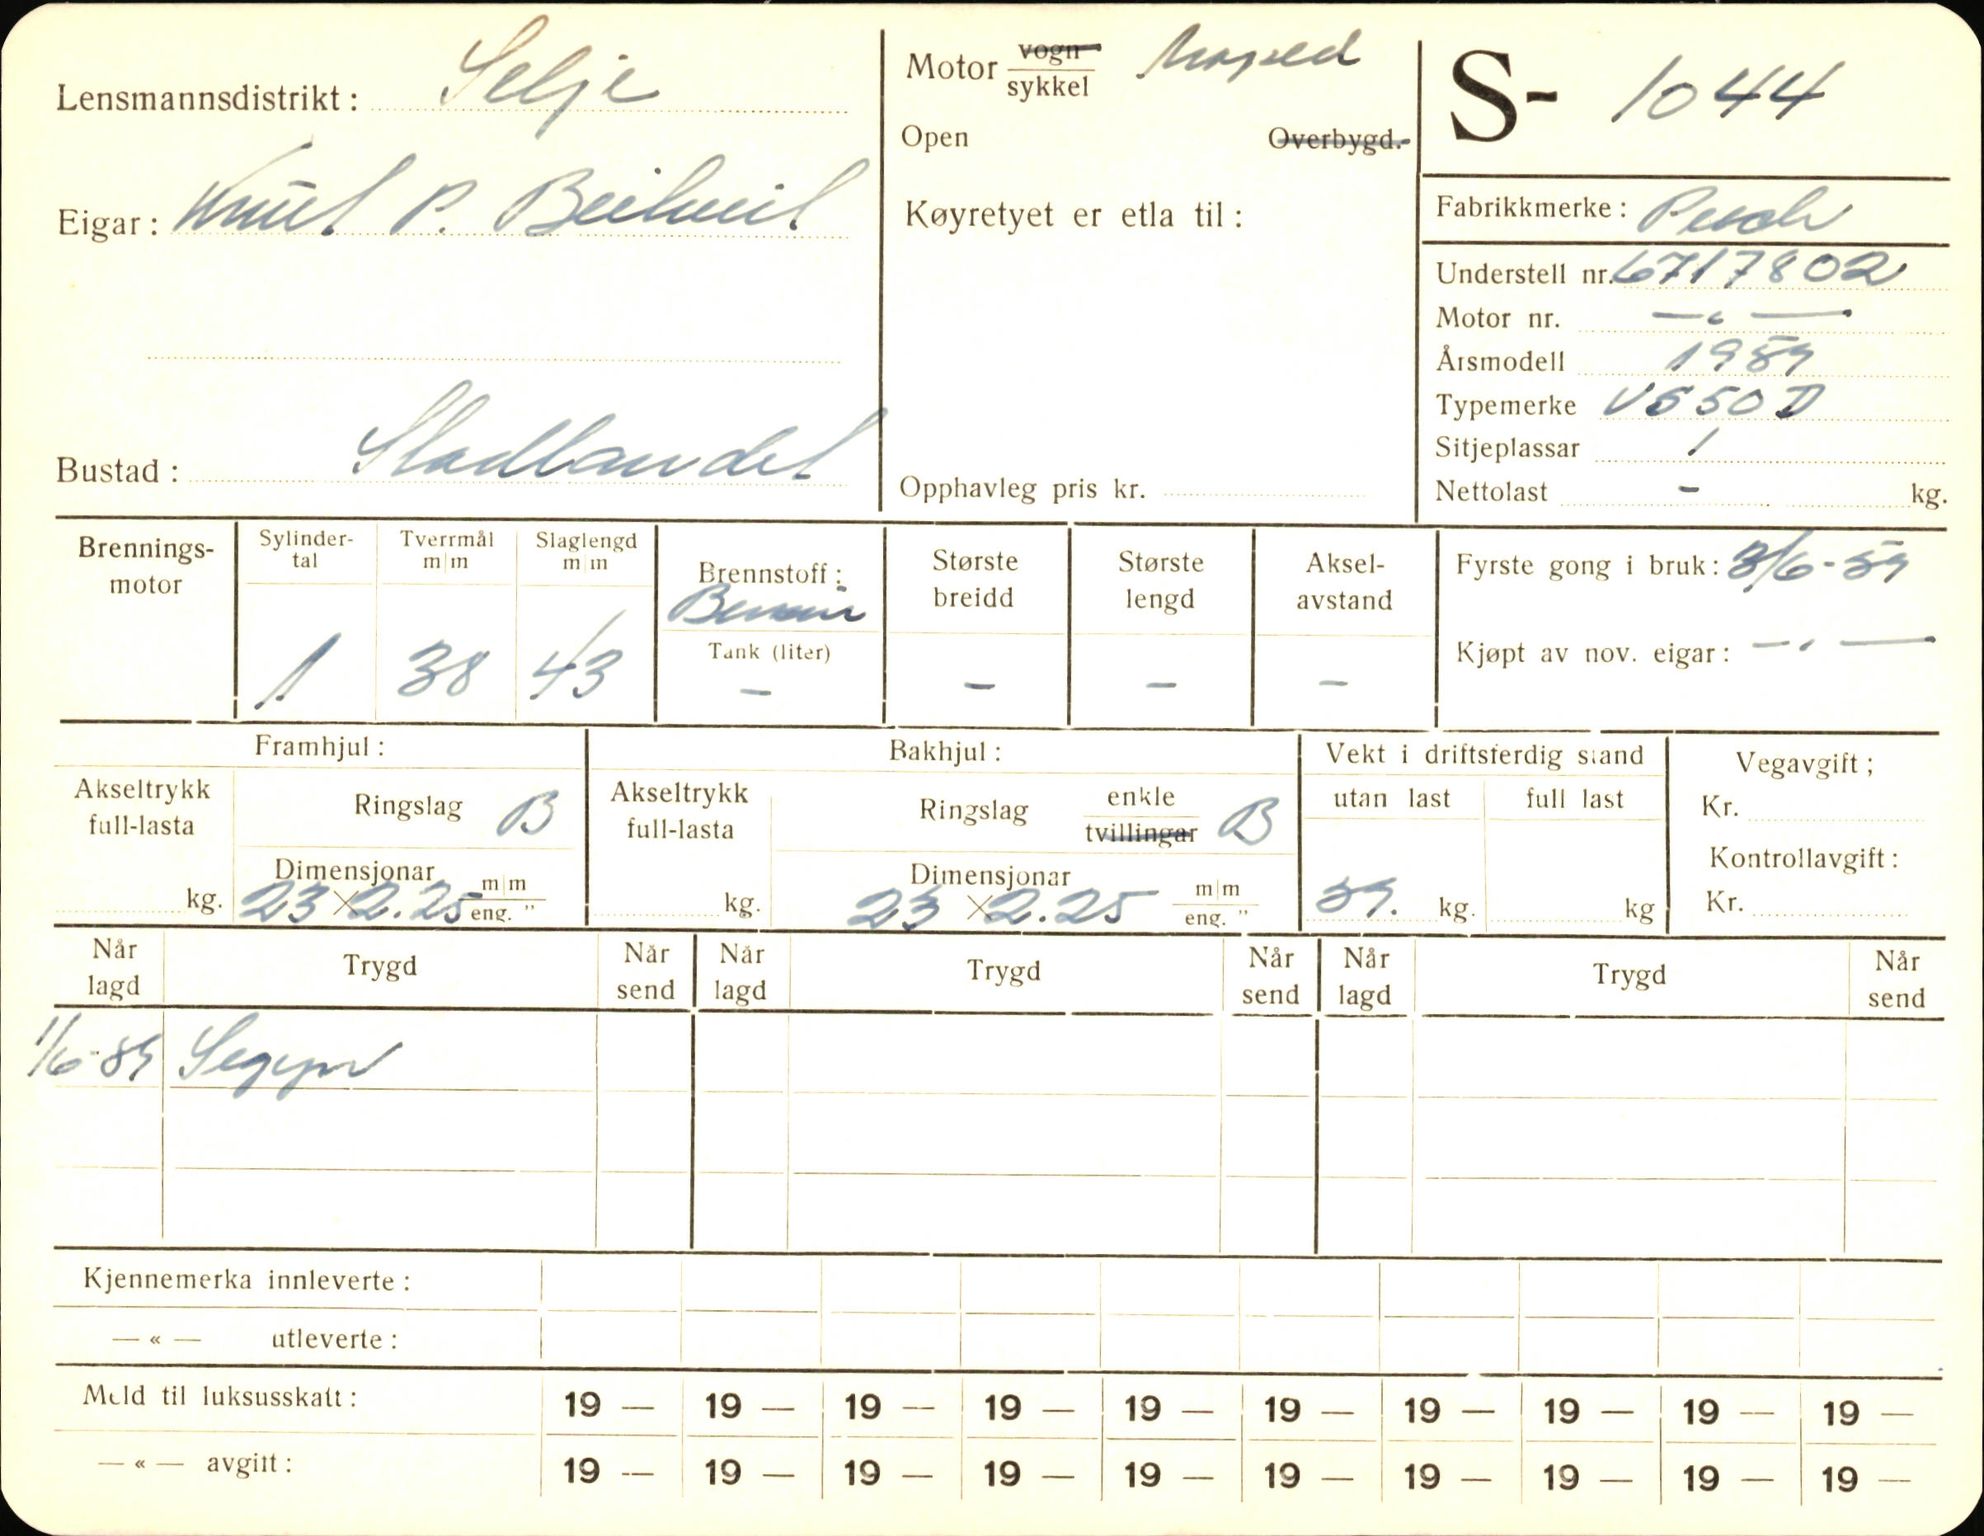 Lensmannsdistrikt: Selje
Eigar: Knut P.
Bustad: Stadlandet
Motor vogn Moped
sykkel
Open Overbygd.
Køyretyet er etla til:
Opphavleg pris kr.
S- 1044
Fabrikkmerke: Puch
Understell nr. 6717802
Motor nr. — " —
Årsmodell 1959
Typemerke VS50D
Sitjeplassar 1
Nettolast - kg.
Brennings-
motor
Sylinder-
tal
1
Tverrmål
m/m
38
Slaglengd
m/m
43
Brennstoff:
Bensin
Tank (liter)
-
Største
breidd
-
Største
lengd
-
Aksel-
avstand
-
Fyrste gong i bruk: 3/6-59
Kjøpt av nov. eigar: — " —
Framhjul:
Akseltrykk
full-lasta
kg.
Ringslag B
Dimensjonar
23 × 2.25 m/m
eng. "
Bakhjul:
Akseltrykk
full-lasta
kg.
Ringslag enkle
tvillingar B
Dimensjonar
23 × 2.25 m/m
eng. "
Vekt i driftsferdig stand
utan last full last
59. kg. kg
Vegavgift;
Kr.
Kontrollavgift:
Kr.
Når
lagd Trygd Når
send Når
lagd Trygd Når
send Når
lagd Trygd Når
send
1/6-59
Kjennemerka innleverte:
— « — utleverte:
Meld til luksusskatt: 19 — 19 — 19 — 19 — 19 — 19 — 19 — 19 — 19 — 19 —
— « — avgift: 19 — 19 — 19 — 19 — 19 — 19 — 19 — 19 — 19 — 19 —